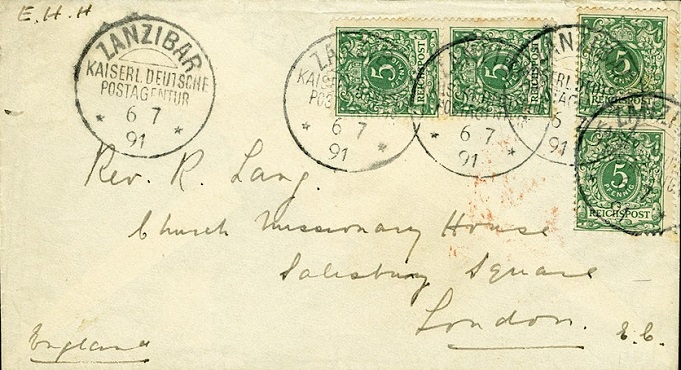 E. H. H
ZANZIBAR
KAISERL. DEUTSCHE
POSTAGENTUR
* 6 7 *
91
5
PFENNIG
REICHSPOST
5
PFENNIG
REICHSPOST
6 7
91
6 7
91
5
PFENNIG
REICHSPOST
91
5
PFENNIG
REICHSPOST
Rev. R. Lang.
Church Missionary House
Salisbury Square
London. E. C.
England